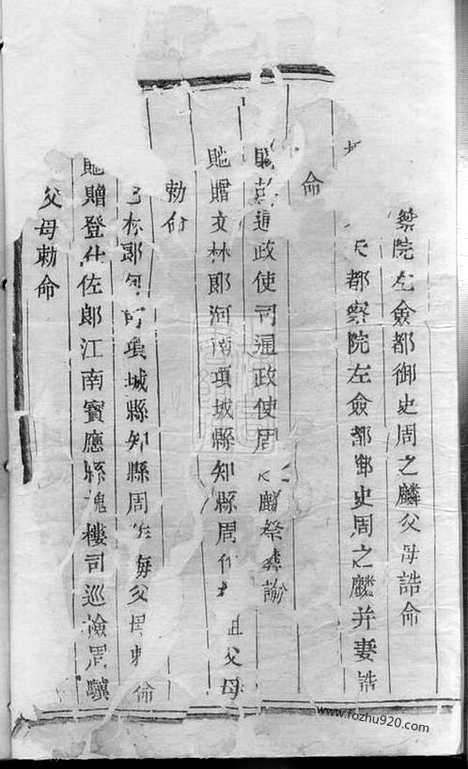 察院左僉都御史周之麟父母誥命
都察院左僉都御史周之麟并妻誥
命
通政使司通政使周之麟祭葬諭
貤贈文林郎河南項城縣知縣周 祖父母
勅命
林郎河南項城縣知縣周 父母 命
貤贈登仕佐郎江南寶應縣槐樓司巡檢周驥
父母勅命
www.fozhu920.com